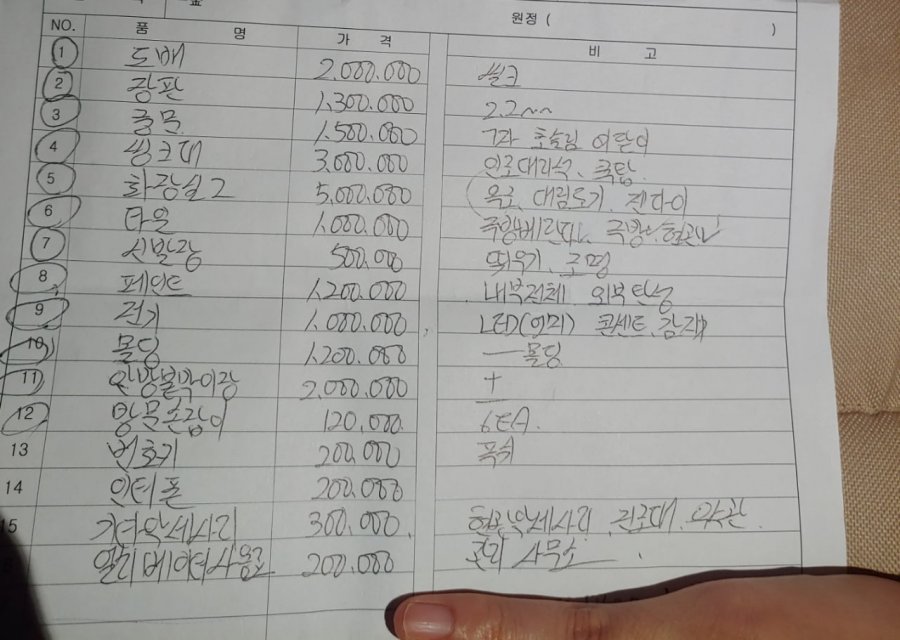 원정 ( )
NO. 품 명 가 격 비 고
1 도배 2,000,000 씰크
2 장판 1,300,000 2.2~~
3 중문 1,500,000 초슬림 여닫이
4 씽크대 3,000,000 인조대리석, 쿡탑
5 화장실2 5,000,000 욕조, 대림도기, 젠다이
6 타일 1,000,000 주방, 현관
7 신발장 500,000 띄우기, 조명
8 페인트 1,200,000 내부전체 외부탄성
9 전기 1,000,000 LED(이미) 콘센트,
10 몰딩 1,200,000 몰딩
11 안방붙박이장 2,000,000
12 방문손잡이 120,000 6EA.
13 번호키 200,000 푹쉬
14 인터폰 200,000
15 기타악세사리 300,000 현관악세사리, 건조대,
엘리베이터사용료 200,000 관리사무소